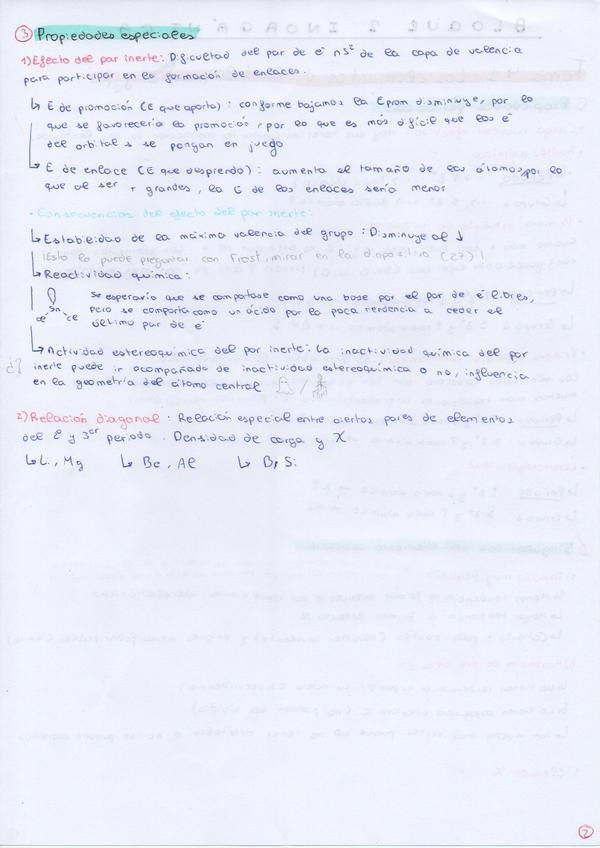 ③ Propiedades especiales
1) Efecto del par inerte: Dificultad del par de e⁻ ns² de la capa de valencia
para participar en la formación de enlaces.
↳ E de promoción (E que aporto): conforme bajamos la Eprom disminuye, por lo
que se favorecería la promoción, por lo que es más difícil que los e⁻
del orbital s se pongan en juego
↳ E de enlace (E que desprendo): aumenta el tamaño de los átomos, por lo
que al ser + grandes, la E de los enlaces sería menor
• Consecuencias del efecto del par inerte:
↳ Estabilidad de la máxima valencia del grupo: Disminuye al ↓
¡Esto lo puede preguntar con Frost, mirar en la diapositiva (27)!
↳ Reactividad química:
Se esperaría que se comportase como una base por el par de e⁻ libres,
Sn
pero se comporta como un ácido por la poca tendencia a ceder el
último par de e⁻
↳ Actividad estereoquímica del par inerte: La inactividad química del par
¿?
inerte puede ir acompañado de inactividad estereoquímica o no, influencia
en la geometría del átomo central
2) Relación diagonal: Relación especial entre ciertos pares de elementos
del 2º y 3er periodo. Densidad de carga y X
↳ Li, Mg ↳ Be, Al ↳ B, Si
2